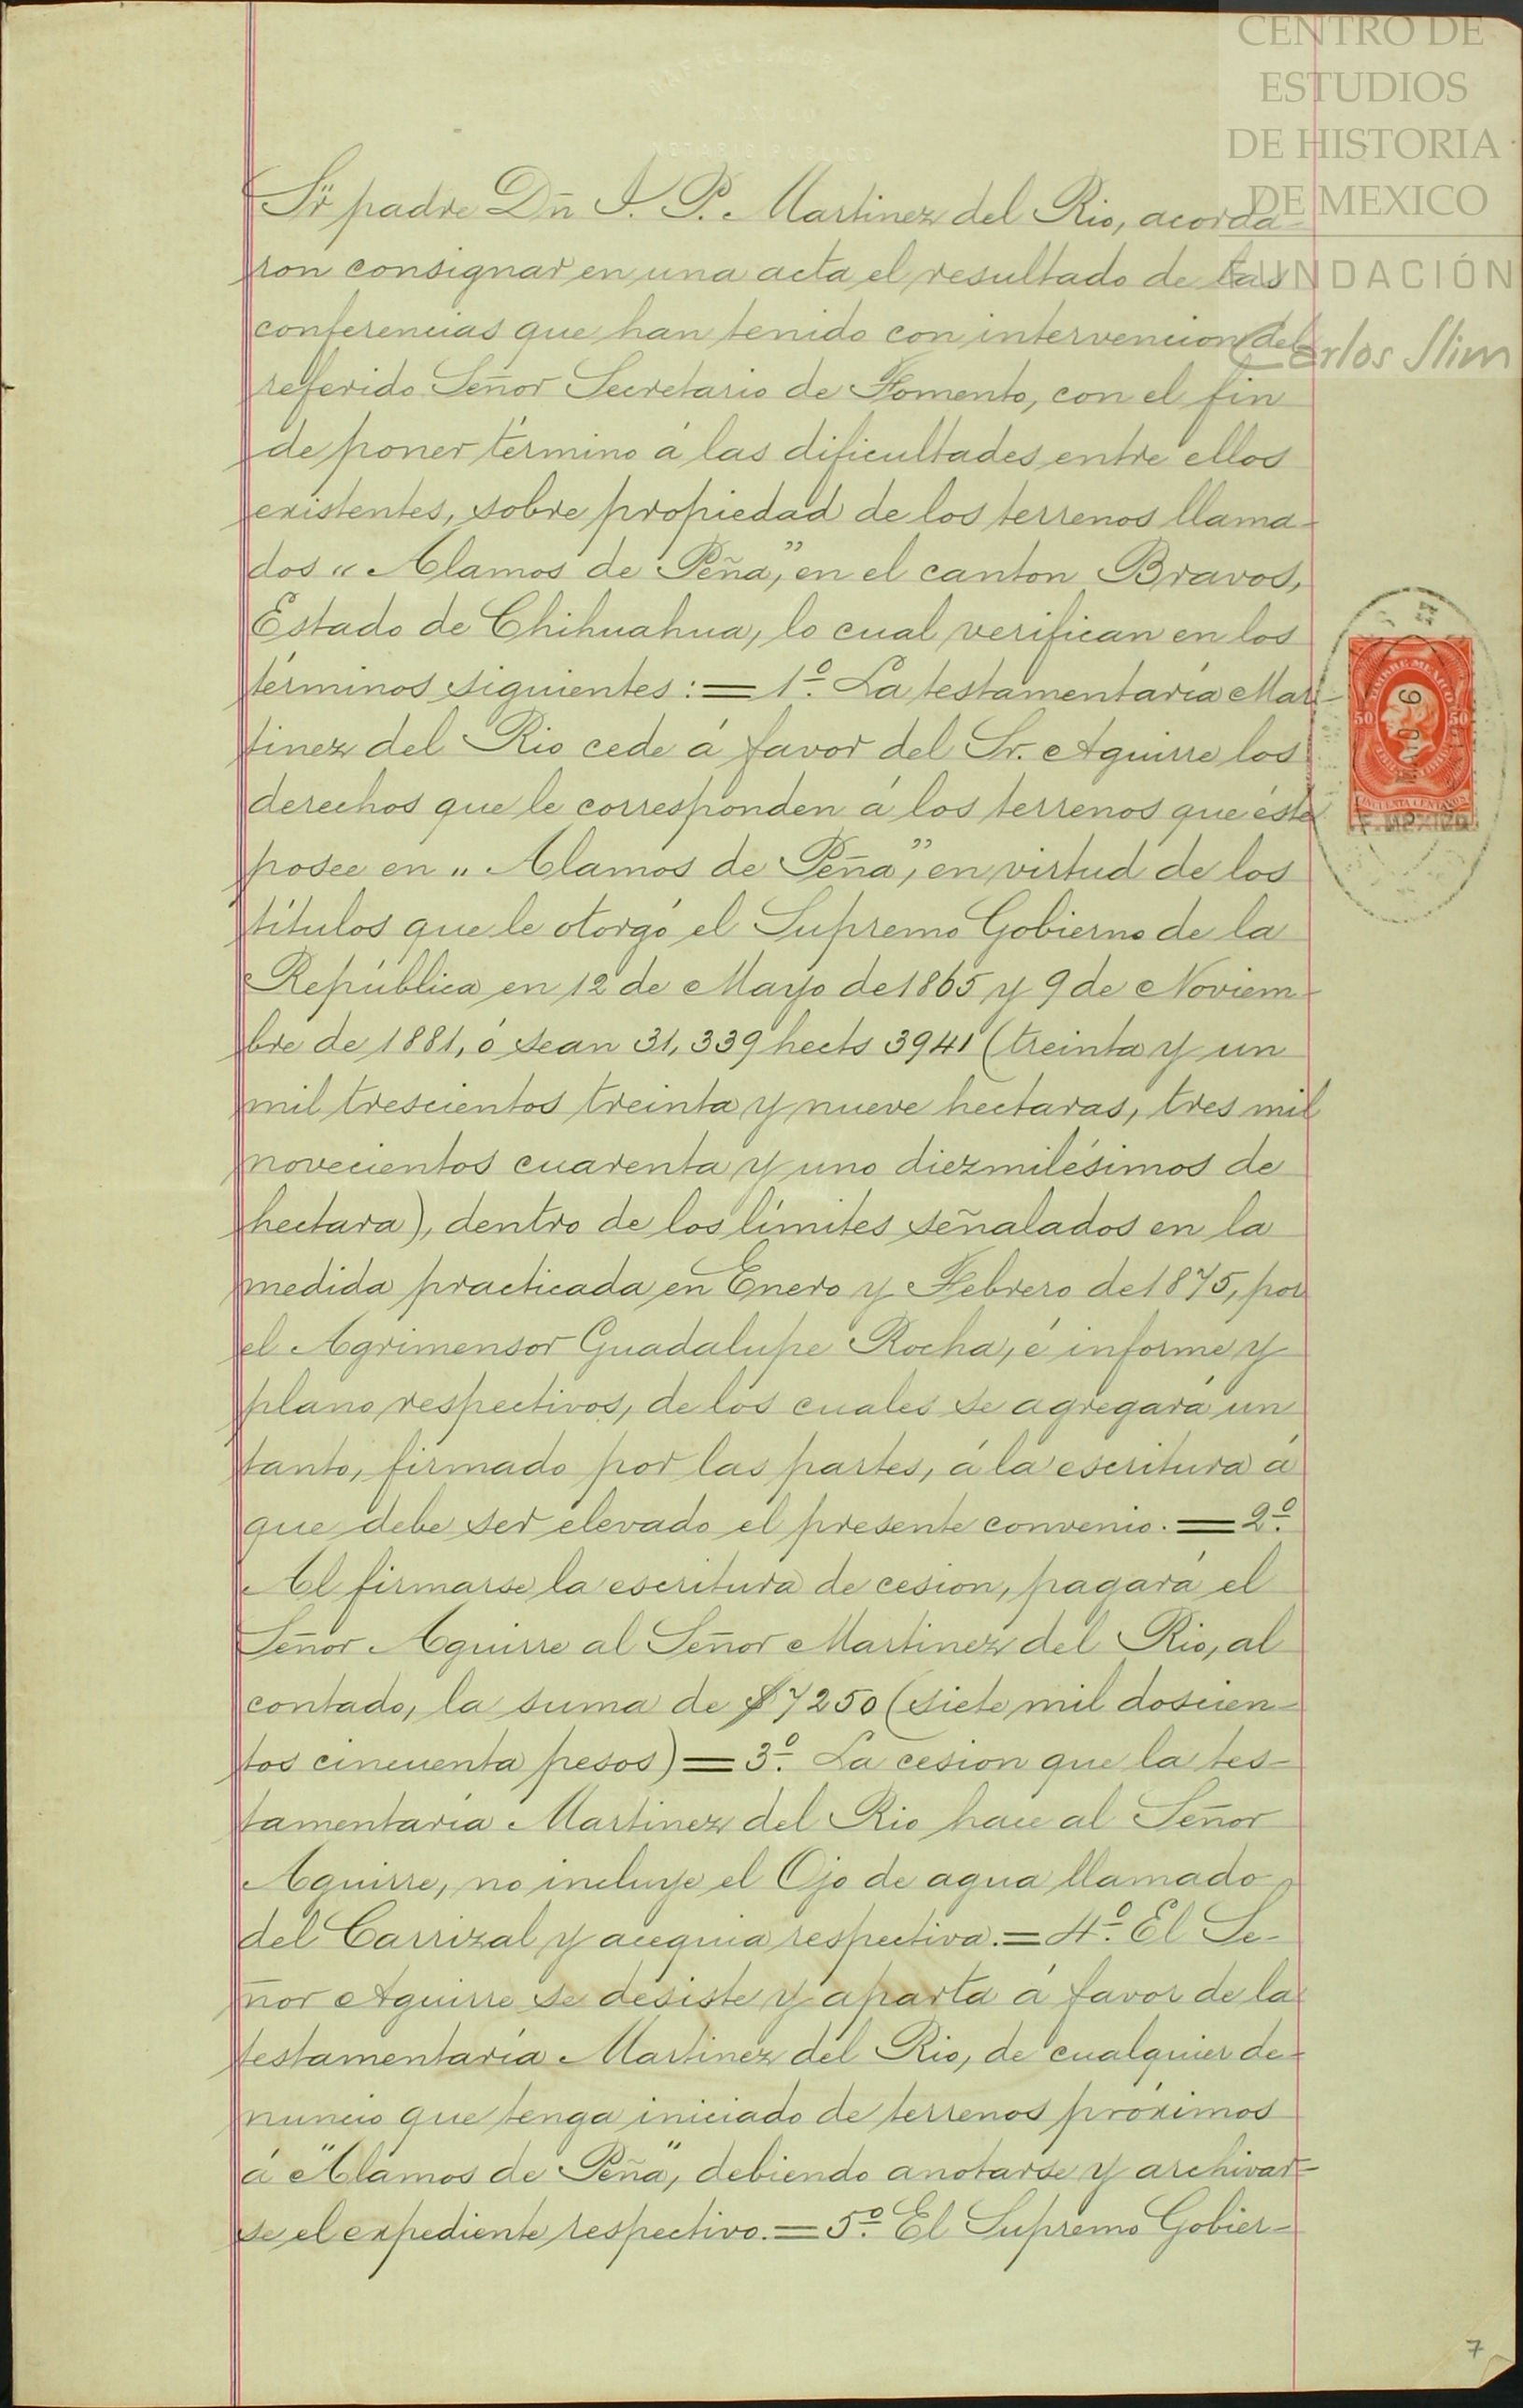 CENTRO DE
ESTUDIOS
DE HISTORIA
DE MEXICO
FUNDACIÓN
Carlos Slim
Sr̃ padre Dn̄ J. P. Martinez del Rio, acorda-
ron consignar en una acta el resultado de las
conferencias que han tenido con intervencion del
referido Señor Secretario de Fomento, con el fin
de poner término á las dificultades entre ellos
existentes, sobre propiedad de los terrenos llama-
dos "Alamos de Peña", en el canton Bravos,
Estado de Chihuahua, lo cual verifican en los
términos siguientes: = 1º. La testamentaría Mar-
tinez del Rio cede á favor del Sr. Aguirre los
derechos que le corresponden á los terrenos que éste
posee en "Alamos de Peña", en virtud de los
títulos que le otorgó el Supremo Gobierno de la
República en 12 de Mayo de 1865 y 9 de Noviem-
bre de 1881, ó sean 31,339 hects 3941 (treinta y un
mil trescientos treinta y nueve hectaras, tres mil
novecientos cuarenta y uno diezmilésimos de
hectara), dentro de los límites señalados en la
medida practicada en Enero y Febrero de 1875, por
el Agrimensor Guadalupe Rocha, é informe y
plano respectivos, de los cuales se agregará un
tanto, firmado por las partes, á la escritura á
que debe ser elevado el presente convenio. = 2º.
Al firmarse la escritura de cesion, pagará el
Señor Aguirre al Señor Martinez del Rio, al
contado, la suma de $7250 (siete mil doscien-
tos cincuenta pesos) = 3º. La cesion que la tes-
tamentaría Martinez del Rio hace al Señor
Aguirre, no incluye el Ojo de agua llamado
del Carrizal y acequia respectiva. = 4º. El Se-
ñor Aguirre se desiste y aparta á favor de la
testamentaría Martinez del Rio, de cualquier de-
nuncio que tenga iniciado de terrenos próximos
á "Alamos de Peña", debiendo anotarse y archivar-
se el expediente respectivo. = 5º. El Supremo Gobier-
50 50
CINCUENTA CENTAVOS
7